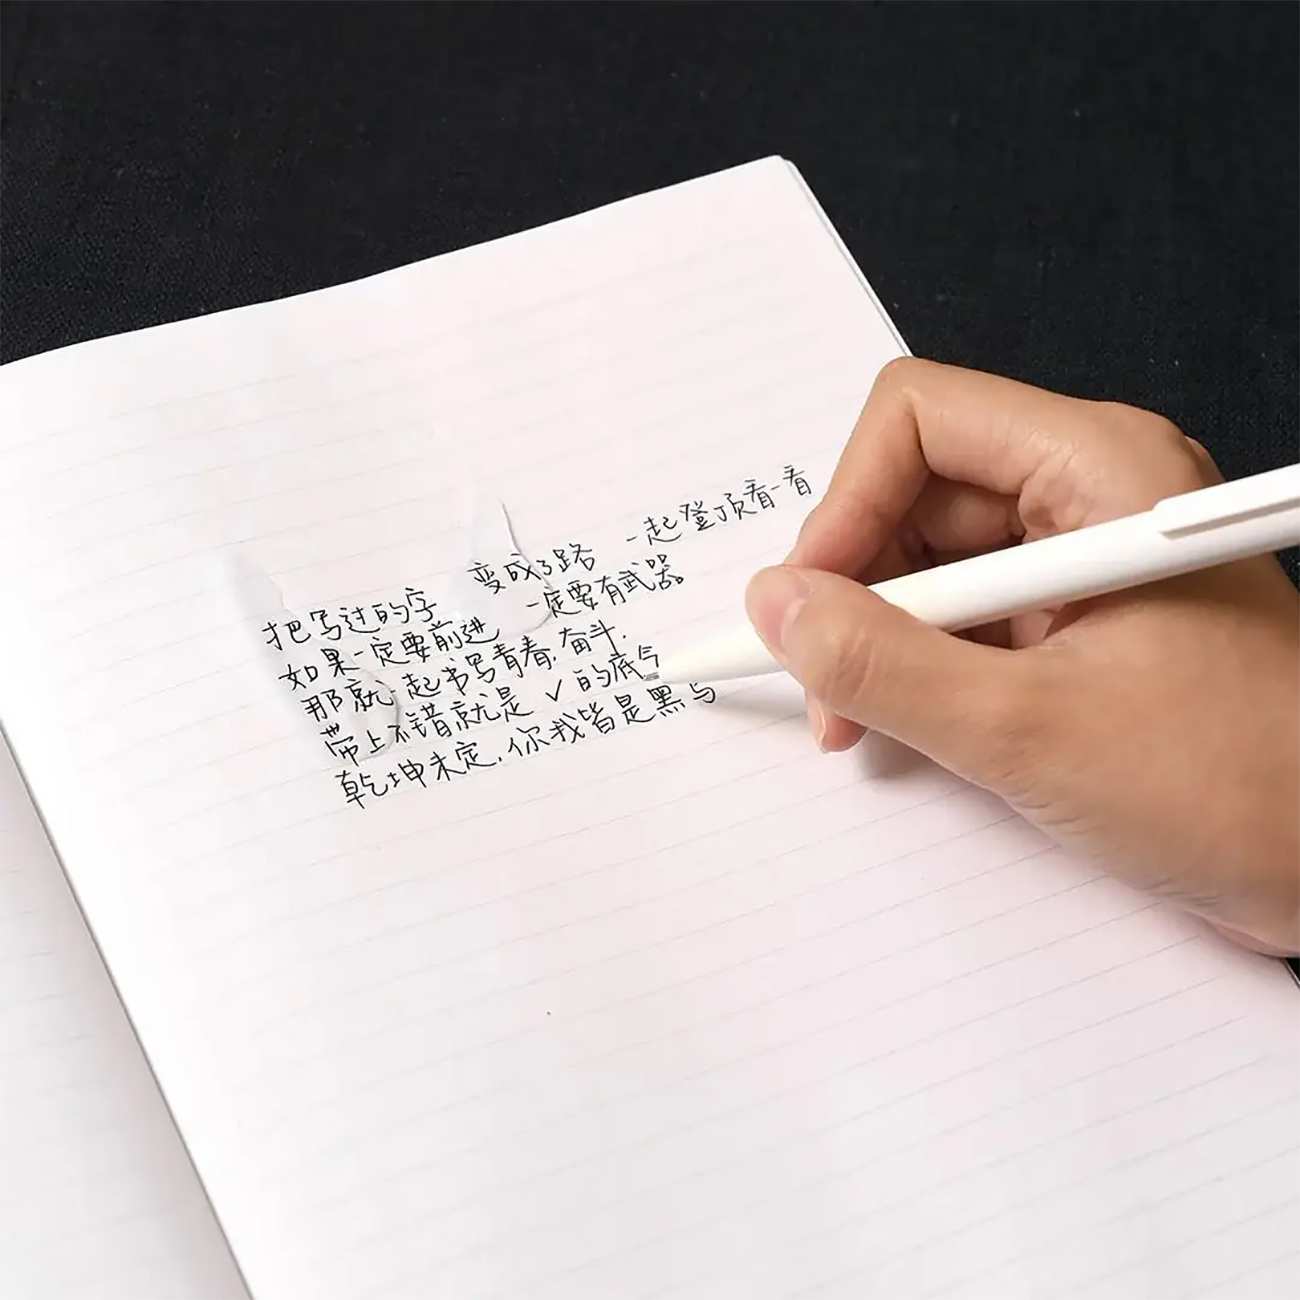 把写过的字 变成了路 一起登顶看一看
如果一定要前进 一定要有武器
那就一起书写青春,奋斗.
带上不错就是 ✓ 的底气
乾坤未定,你我皆是黑马